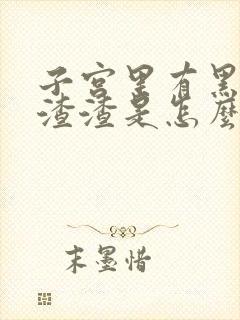 子宫里有黑
渣渣是怎麽
末墨惜